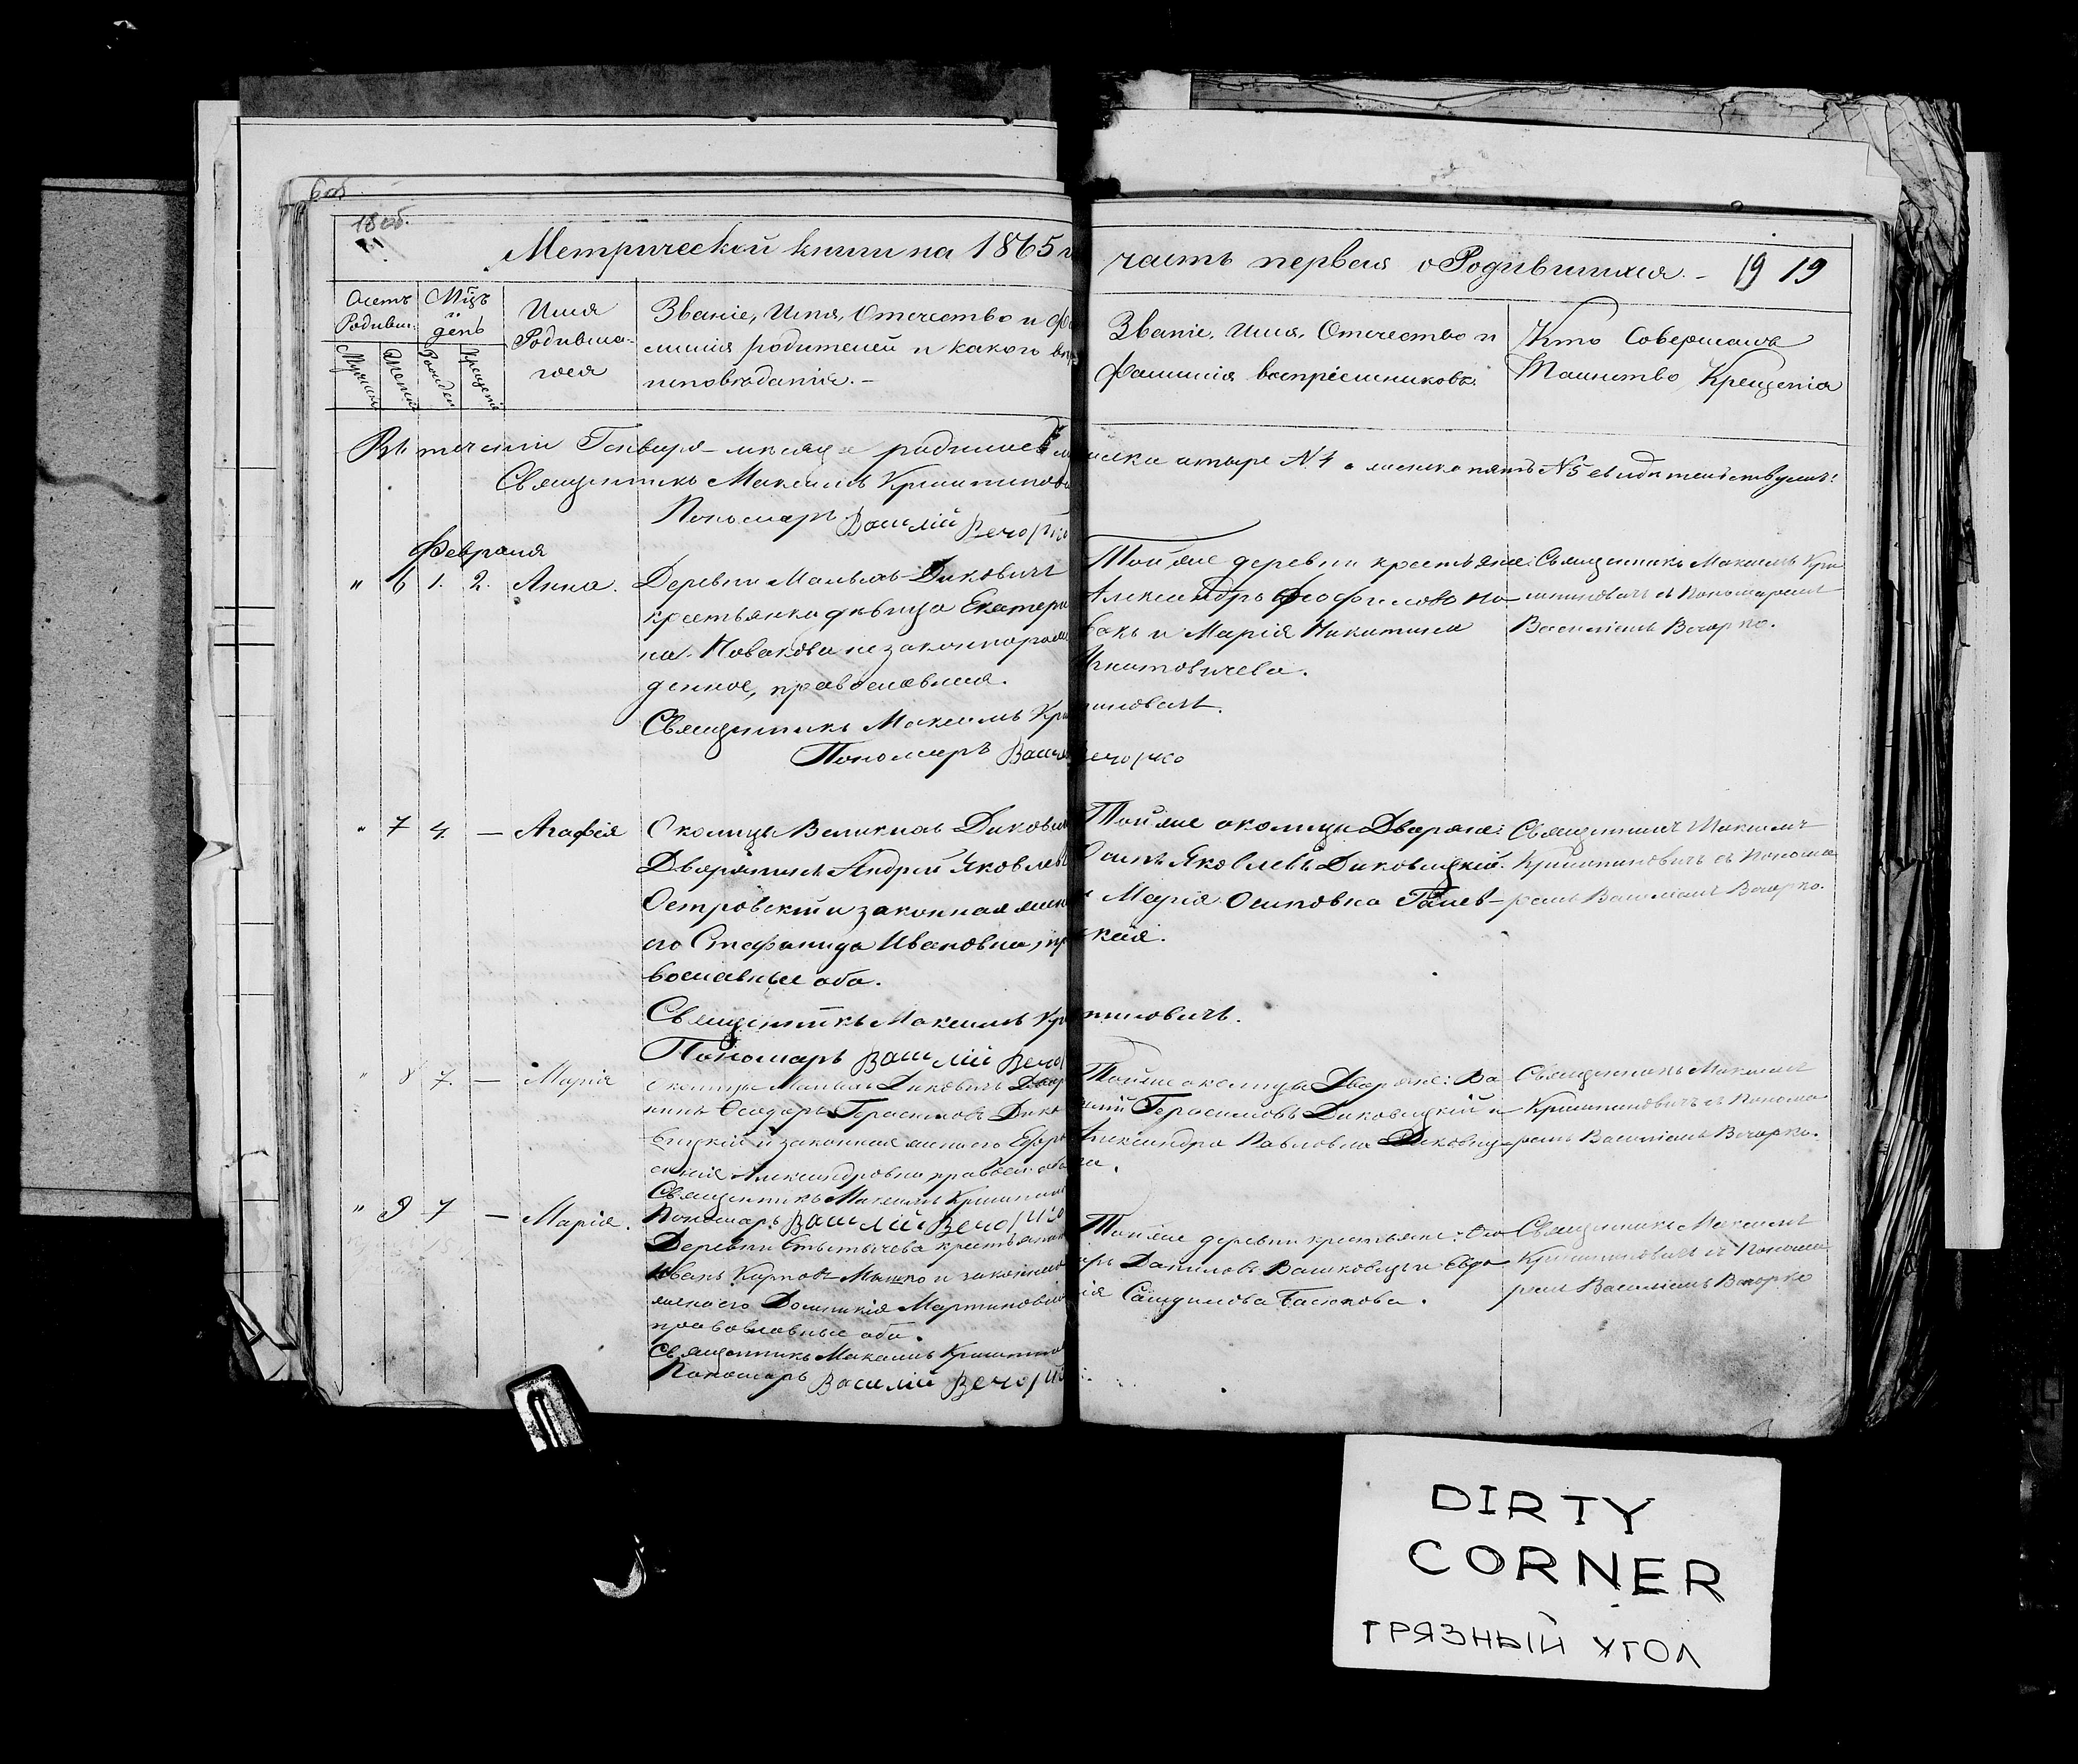 18 об.
Метрической книги на 1865 г
часть первая о Родившихся. - 19 19
Счетъ Родивш.
Мѣсцъ и день
Мужеска
Женска
Рожден
Крещенія
Имя
Родивша-
гося
Званіе, Имя, Отчество и фа
милія родителей и какого вѣро
исповѣданія. -
Званіе, Имя, Отчество и
Фамилія воспріемниковъ.
Кто совершалъ
Таинство Крещенія
Въ теченіи Генваря мѣсяца родилось мужеска четыре № 4 а женска пять № 5 свидѣтельствуемъ:
Священникъ Максимъ
Пономарь Василій Вечорко
Февраля
" 6 1. 2. Анна.
Деревни Малыхъ Диковичъ
крестьянка дѣвица Екатери
на Новакова незаконнорож
денное, православная.
Священникъ Максимъ
Пономарь Вечорко
Той же деревни крестьяне:
Александръ Феофиловъ Но-
вакъ и Марія Никитина
Игнатовичева.
Священникъ Максимъ Кри
шпиновичъ съ Пономаремъ
Василіемъ Вечорко.
" 7 4. — Агафія
Околицы Великихъ Дикович
Дворянинъ Андрей Яковлевъ
Островскій и законная жена
его Стефанида Ивановна, пра
вославные оба.
Священникъ Максимъ Кришпиновичъ.
Пономарь Василій Вечор
Той же околицы Дворяне:
Осипъ Яковлевъ Диковицкій
и Марія Осиповна
ская.
Священникъ Максимъ
Кришпиновичъ съ Понома
ремъ Василіемъ Вечорко.
" 8 7. — Марія
Околицы Малыхъ Диковичъ Дворя
нинъ Феодоръ Герасимовъ Дико
вицкій и законная жена его Евфро
синія Александровна правосл. оба
Священникъ Максимъ
Пономарь Василій Вечорко
Той же околицы Дворяне: Ва
силій Герасимовъ Диковицкій и
Александра Павловна Диковиц-
кая.
Священникъ Максимъ
Кришпиновичъ съ Понома
ремъ Василіемъ Вечорко.
" 9 7 — Марія.
Деревни Стытычева крестьянинъ
Иванъ Карповъ Мышко и законная
жена его Домникія Мартиновна
православные оба.
Священникъ Максимъ
Пономарь Василій Вечорко
Той же деревни крестьяне:
Даниловъ и Евдо
кія
Священникъ Максимъ
Кришпиновичъ съ Понома
ремъ Василіемъ Вечорко
DIRTY
CORNER
ГРЯЗНЫЙ УГОЛ